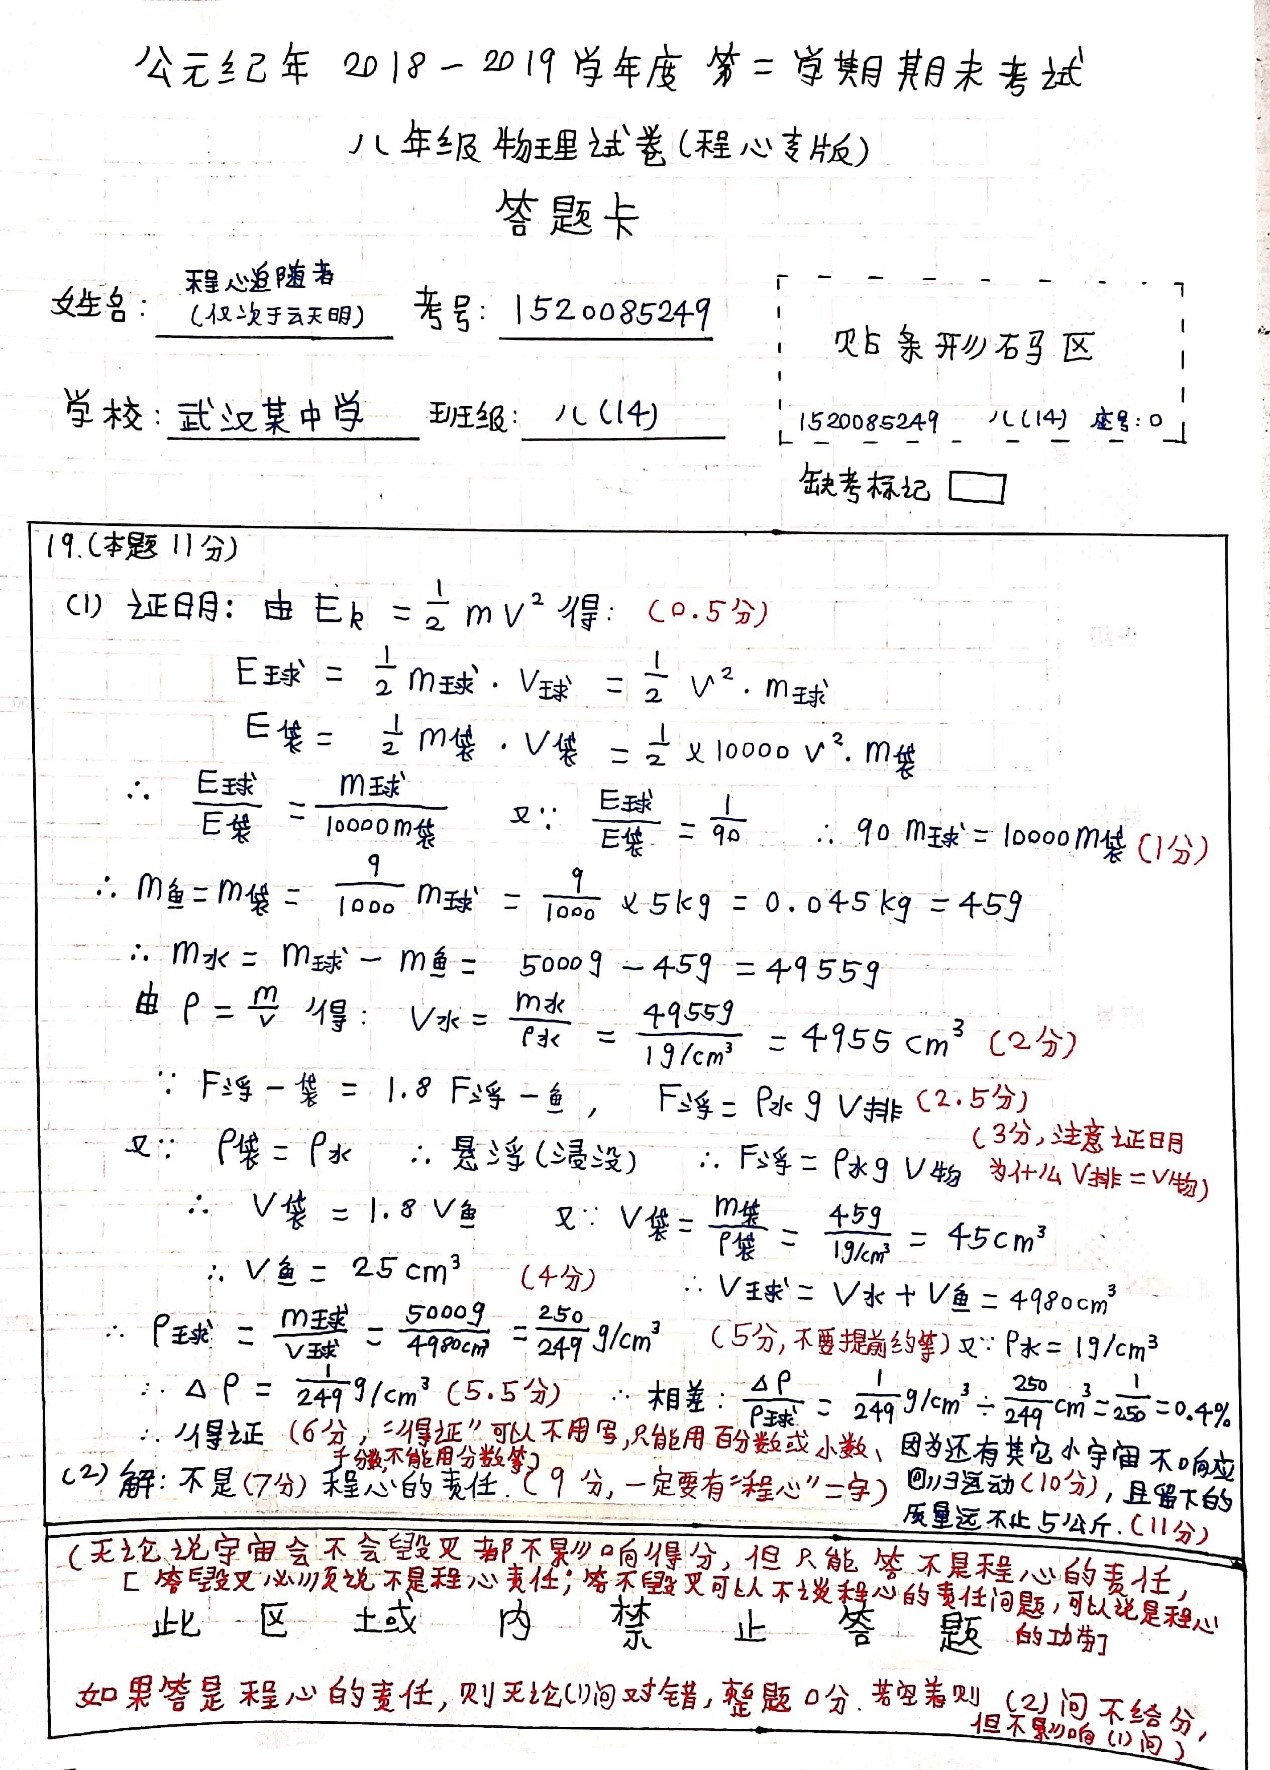 公元纪年 2018-2019学年度 第二学期期末考试
八年级物理试卷(程心专版)
答题卡
姓名: 程心追随者
(仅次于云天明)
考号: 1520085249
贴条形码区
学校: 武汉某中学 班级: 八(14)
1520085249 八(14) 座号:0
缺考标记
19.(本题11分)
(1) 证明: 由 Ek = 1/2 mv² 得: (0.5分)
E球 = 1/2 m球·V球 = 1/2 v²·m球
E袋 = 1/2 m袋·V袋 = 1/2 × 10000v²·m袋
∴ E球/E袋 = m球/10000m袋 又∵ E球/E袋 = 1/90 ∴ 90m球 = 10000m袋 (1分)
∴ m鱼=m袋 = 9/1000 m球 = 9/1000 × 5kg = 0.045kg = 45g
∴ m水 = m球 - m鱼 = 5000g - 45g = 4955g
由 ρ = m/v 得: V水 = m水/ρ水 = 4955g/1g/cm³ = 4955 cm³ (2分)
∵ F浮-袋 = 1.8 F浮-鱼, F浮 = ρ水gV排 (2.5分)
(3分,注意证明
为什么V排=V物)
又∵ ρ袋 = ρ水 ∴ 悬浮(浸没) ∴ F浮 = ρ水gV物
∴ V袋 = 1.8V鱼 又∵ V袋 = m袋/ρ袋 = 45g/1g/cm³ = 45cm³
∴ V鱼 = 25cm³ (4分) ∴ V球 = V水 + V鱼 = 4980cm³
∴ ρ球 = m球/V球 = 5000g/4980cm³ = 250/249 g/cm³ (5分,不要提前约等) 又∵ ρ水 = 1g/cm³
∴ Δρ = 1/249 g/cm³ (5.5分) ∴ 相差: Δρ/ρ球 = 1/249 g/cm³ ÷ 250/249 cm³ = 1/250 = 0.4%
∴ 得证 (6分,“得证”可以不用写,只能用百分数或小数、
千分数,不能用分数等)
(2) 解: 不是(7分) 程心的责任.(9分,一定要有“程心”二字)
因为还有其它小宇宙不响应
回归运动(10分), 且留下的
质量远不止5公斤.(11分)
(无论说宇宙会不会毁灭都不影响得分, 但只能答不是程心的责任,
[答毁灭必须说不是程心责任;答不毁灭可以不谈程心的责任问题,可以说是程心
的功劳]
此区域内禁止答题
如果答是程心的责任,则无论(1)问对错,整题0分.若空着则(2)问不给分,
但不影响(1)问)